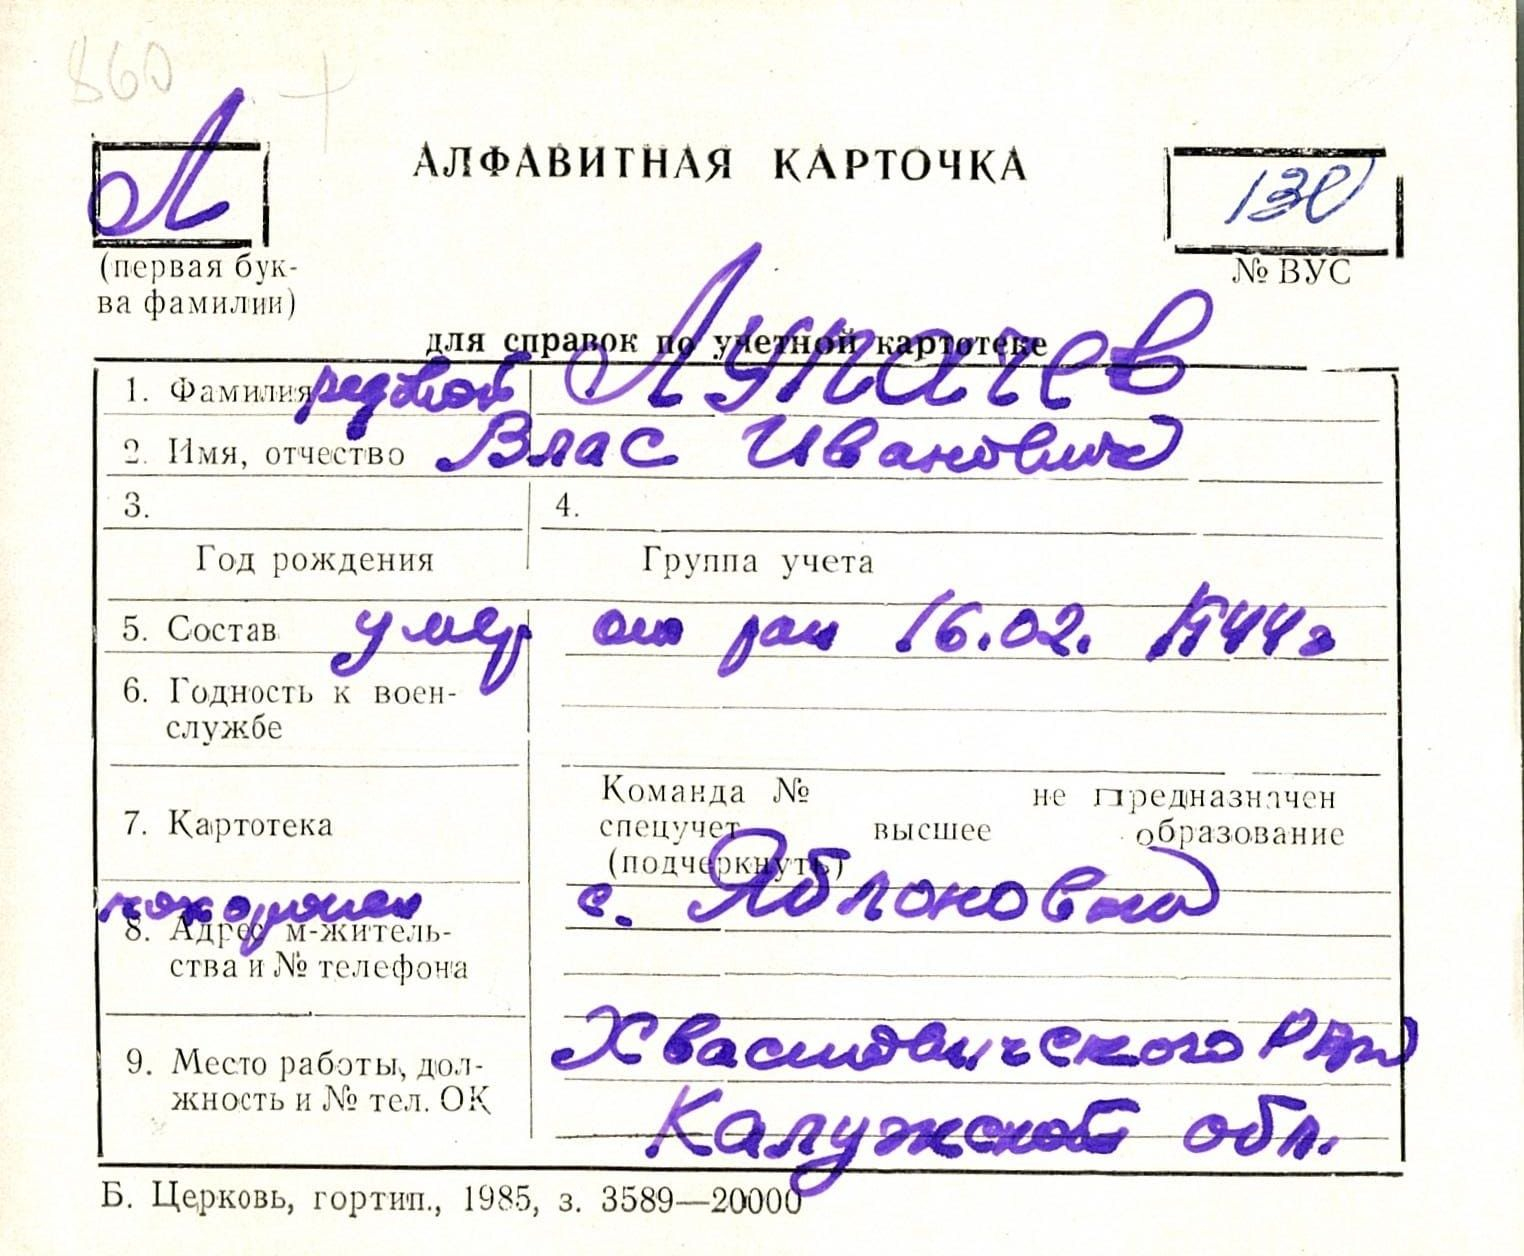 860 +
Л
АЛФАВИТНАЯ КАРТОЧКА
130
(первая бук-
ва фамилии)
№ ВУС
для справок по учетной картотеке
1. Фамилия рядовой Лупачев
2. Имя, отчество Влас Иванович
3.
4.
Год рождения
Группа учета
5. Состав умер от ран 16.02. 1944г
6. Годность к воен-
службе
7. Картотека
Команда № не предназначен
спецучет высшее образование
(подчеркнуть)
похоронен с. Яблоновка
8. Адрес м-житель-
ства и № телефона
Хвастовичского РВК
9. Место работы, дол-
жность и № тел. ОК
Калужской обл.
Б. Церковь, гортип., 1985, з. 3589—20000